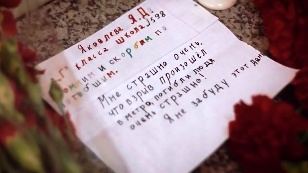 Яковлева Я.Д.
класса школа 598
"Г"
Помним и скорбим по
погибшим.
Мне страшно очень,
что взрыв произошёл
в метро, погибли люди
очень страшно!
Я не забуду этот